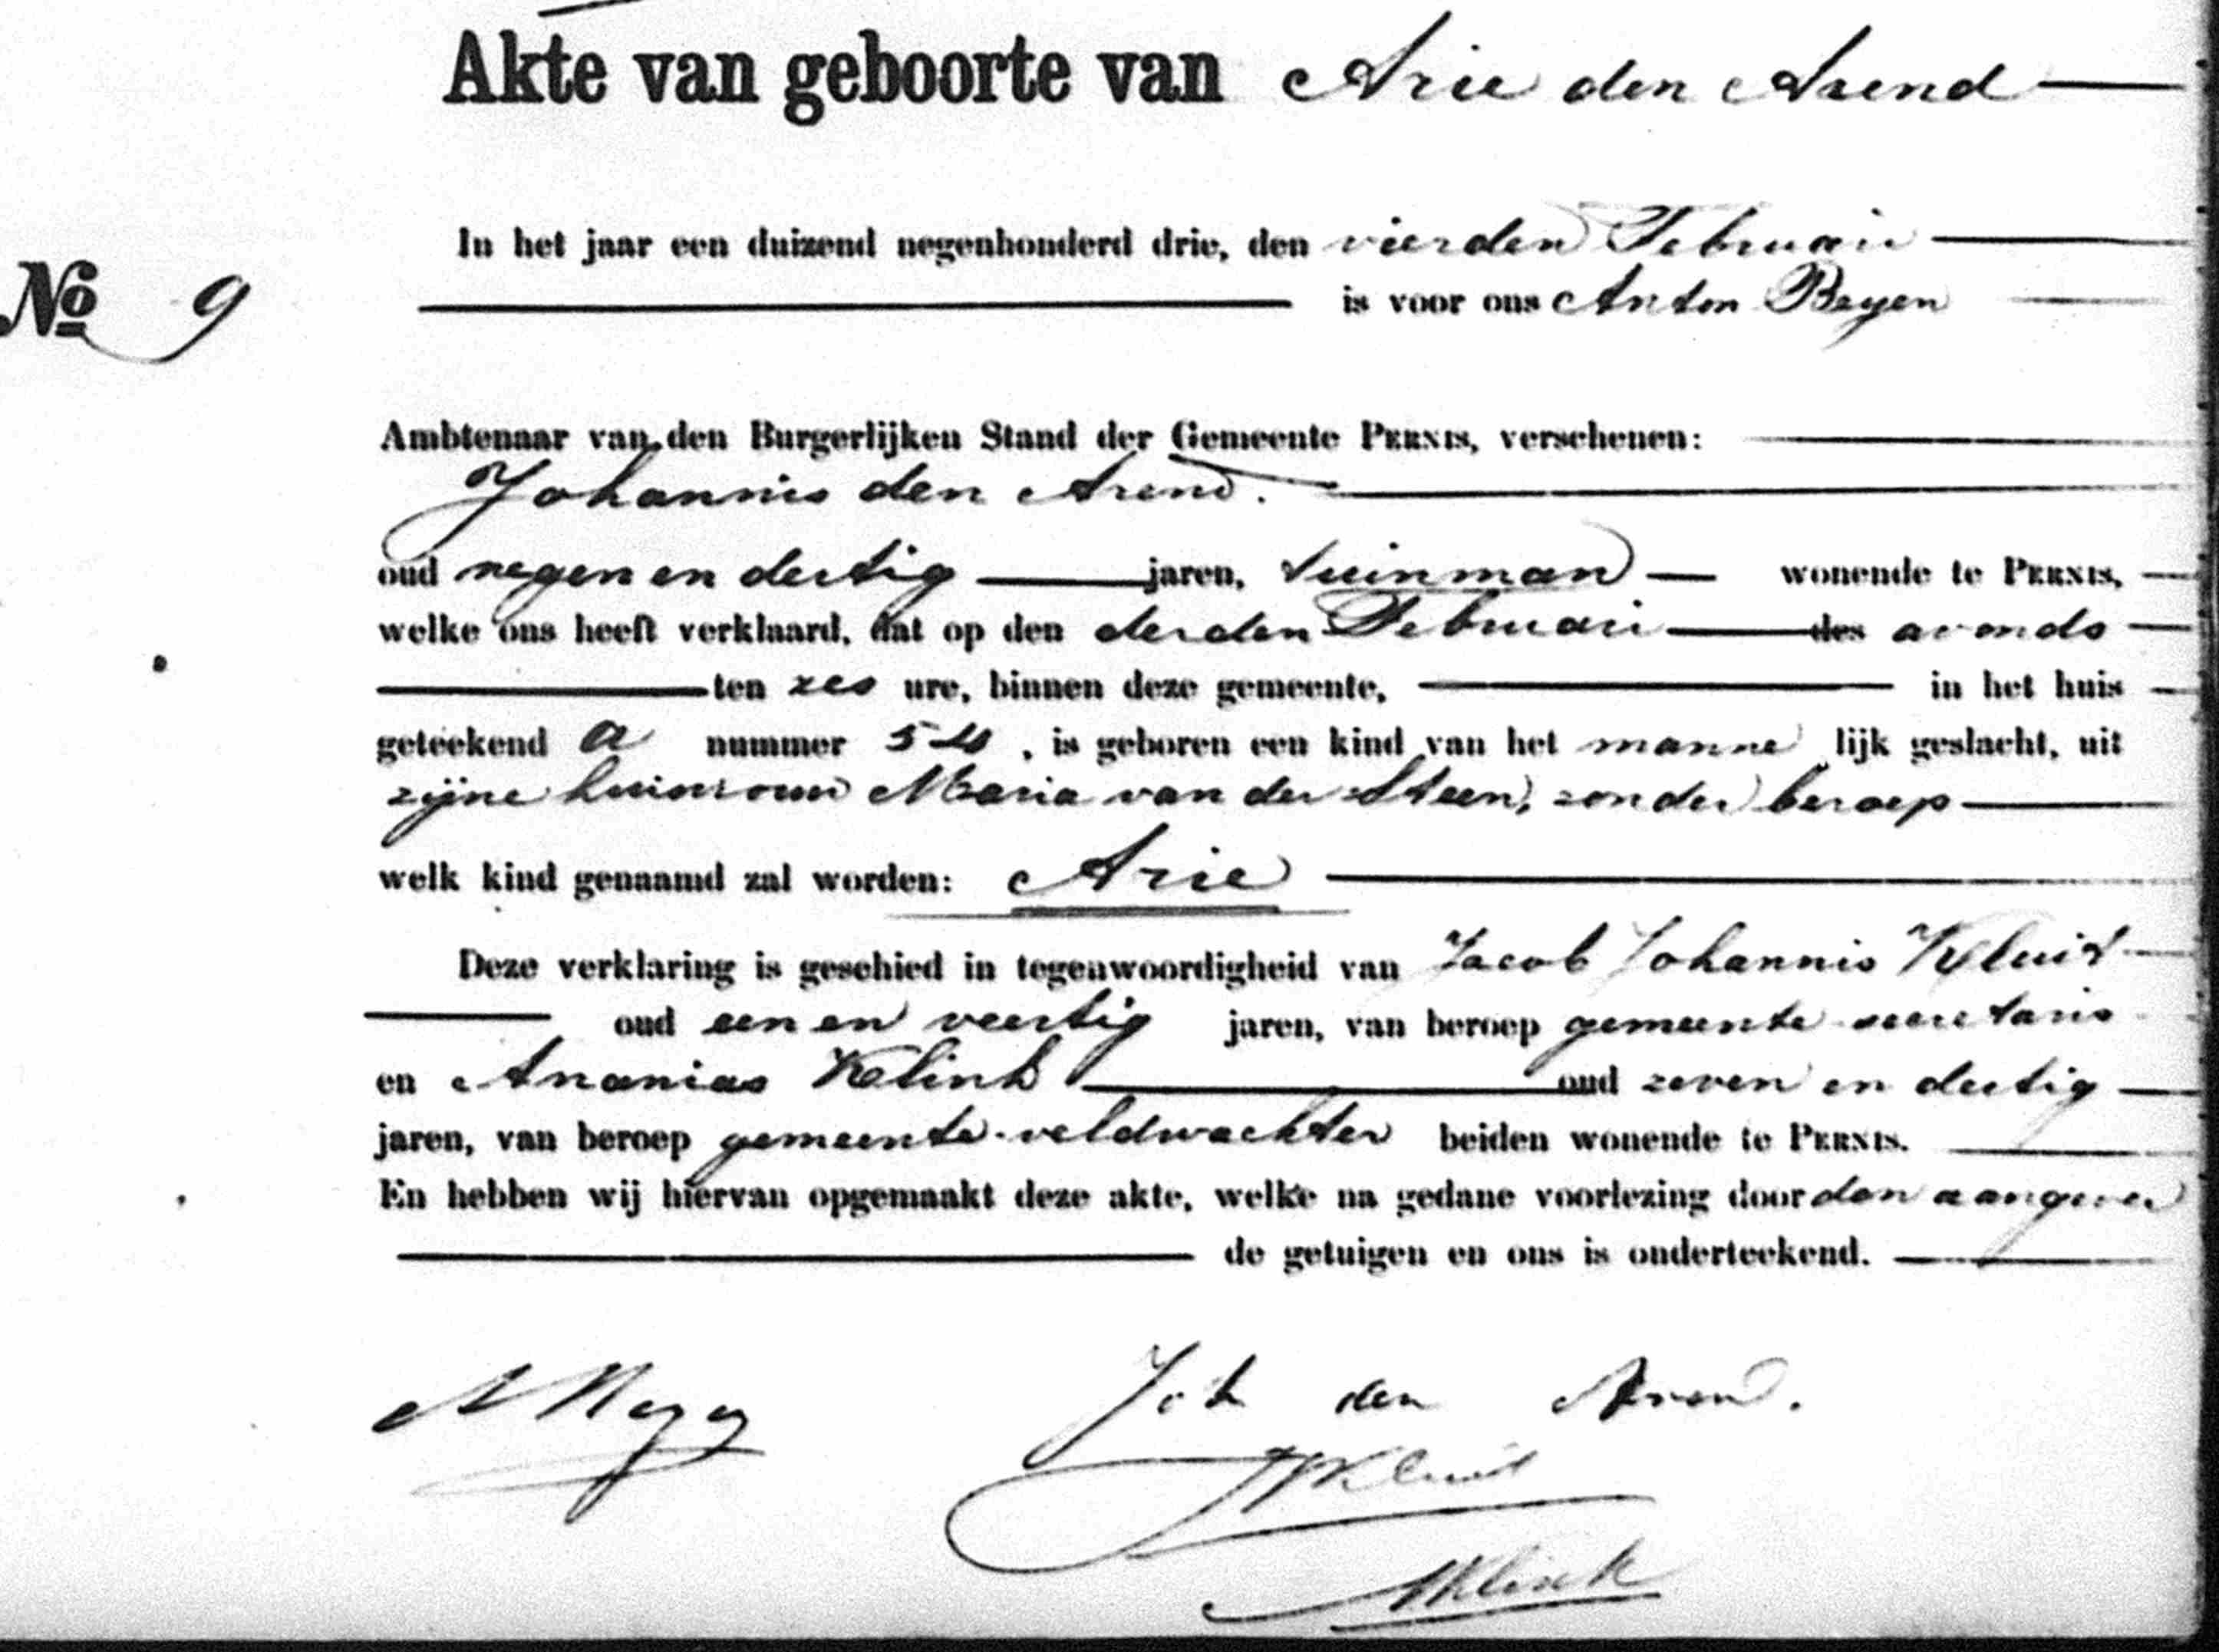 Akte van geboorte van Arie den Arend
In het jaar een duizend negenhonderd drie, den vierden Februari
No 9
is voor ons Anton Beyen
Ambtenaar van den Burgerlijken Stand der Gemeente PERNIS, verschenen:
Johannis den Arend.
oud negen en dertig jaren, tuinman wonende te PERNIS,
welke ons heeft verklaard, dat op den derden Februari des avonds
ten zes ure, binnen deze gemeente, in het huis
geteekend a nummer 54, is geboren een kind van het manne lijk geslacht, uit
zijne huisvrouw Maria van der Steen, zonder beroep
welk kind genaamd zal worden: Arie
Deze verklaring is geschied in tegenwoordigheid van Jacob Johannis Kluit
oud een en veertig jaren, van beroep gemeente-secretaris
en Ananias Klink oud zeven en dertig
jaren, van beroep gemeente-veldwachter beiden wonende te PERNIS.
En hebben wij hiervan opgemaakt deze akte, welke na gedane voorlezing door den aangever
de getuigen en ons is onderteekend.
Joh den Arend.
JJKluit
AKlink